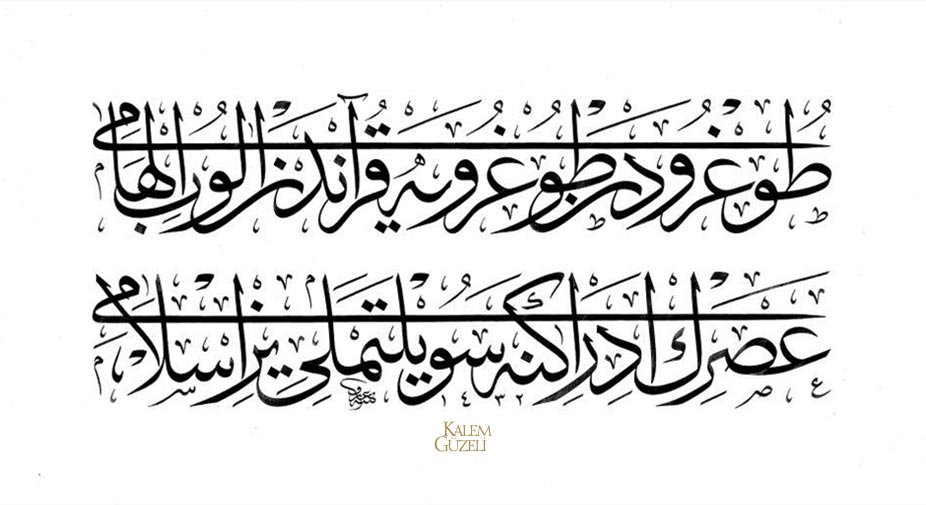 طوغرودن طوغرویه قرآندن الوب الهامی
عصرك ادراكنه سویلتملی یز اسلامی
١٤٣٢
KALEM
GÜZELİ